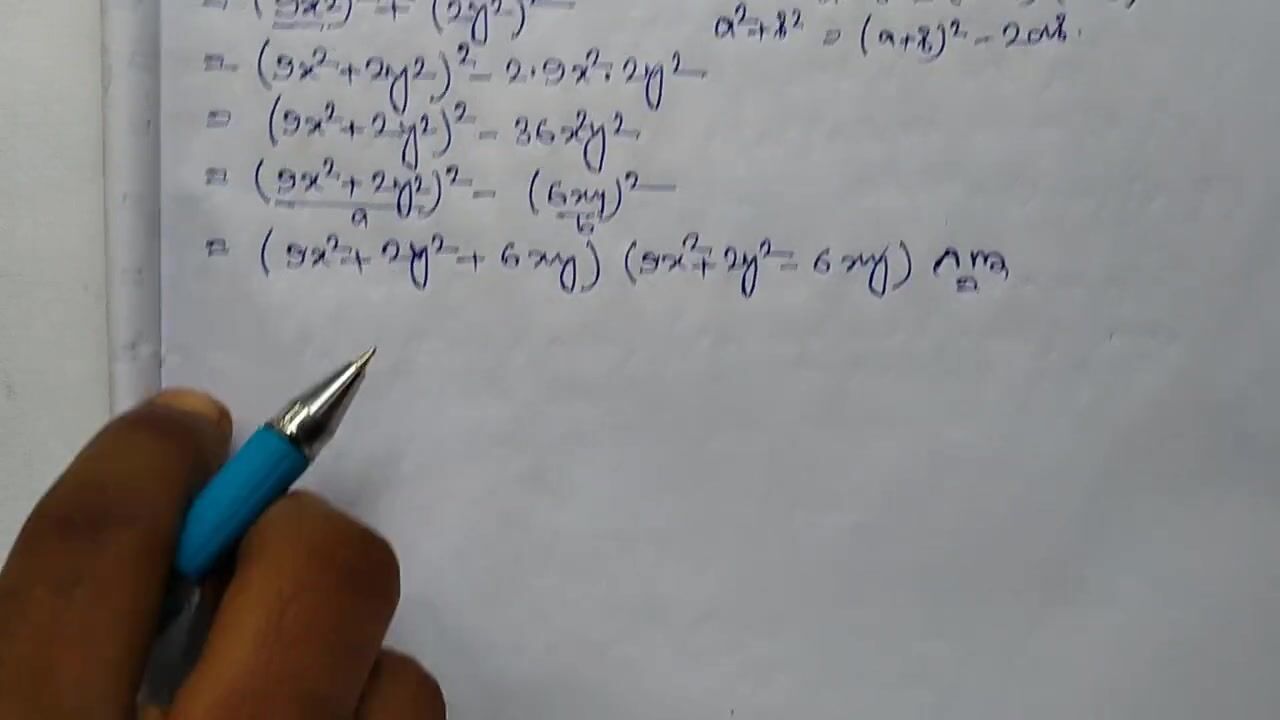 = (9x²)² + (2y²)²
a² + b² = (a+b)² - 2ab.
= (9x² + 2y²)² - 2·9x²·2y²
= (9x² + 2y²)² - 36x²y²
= (9x² + 2y²)² - (6xy)²
a b
= (9x² + 2y² + 6xy) (9x² + 2y² - 6xy) Ans